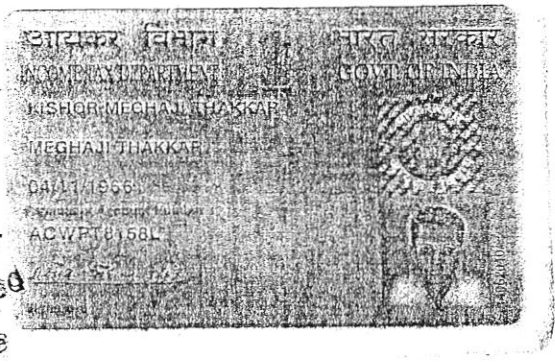 आयकर विभाग भारत सरकार
INCOME TAX DEPARTMENT GOVT. OF INDIA
KISHOR MEGHAJI THAKKAR
MEGHAJI THAKKAR
04/11/1966
Permanent Account Number
ACWPT8158L